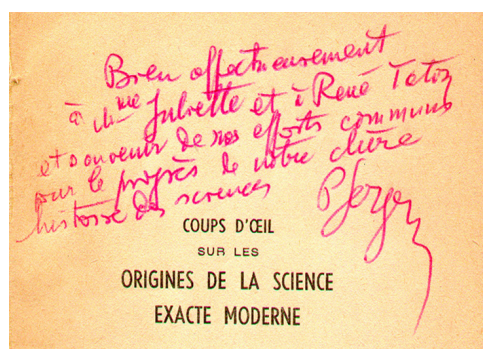 Bien affectueusement
à Mme Juliette et à René Taton
et souvenir de nos efforts communs
pour le progrès de notre chère
histoire des sciences
P. Sergescu
COUPS D'ŒIL
SUR LES
ORIGINES DE LA SCIENCE
EXACTE MODERNE